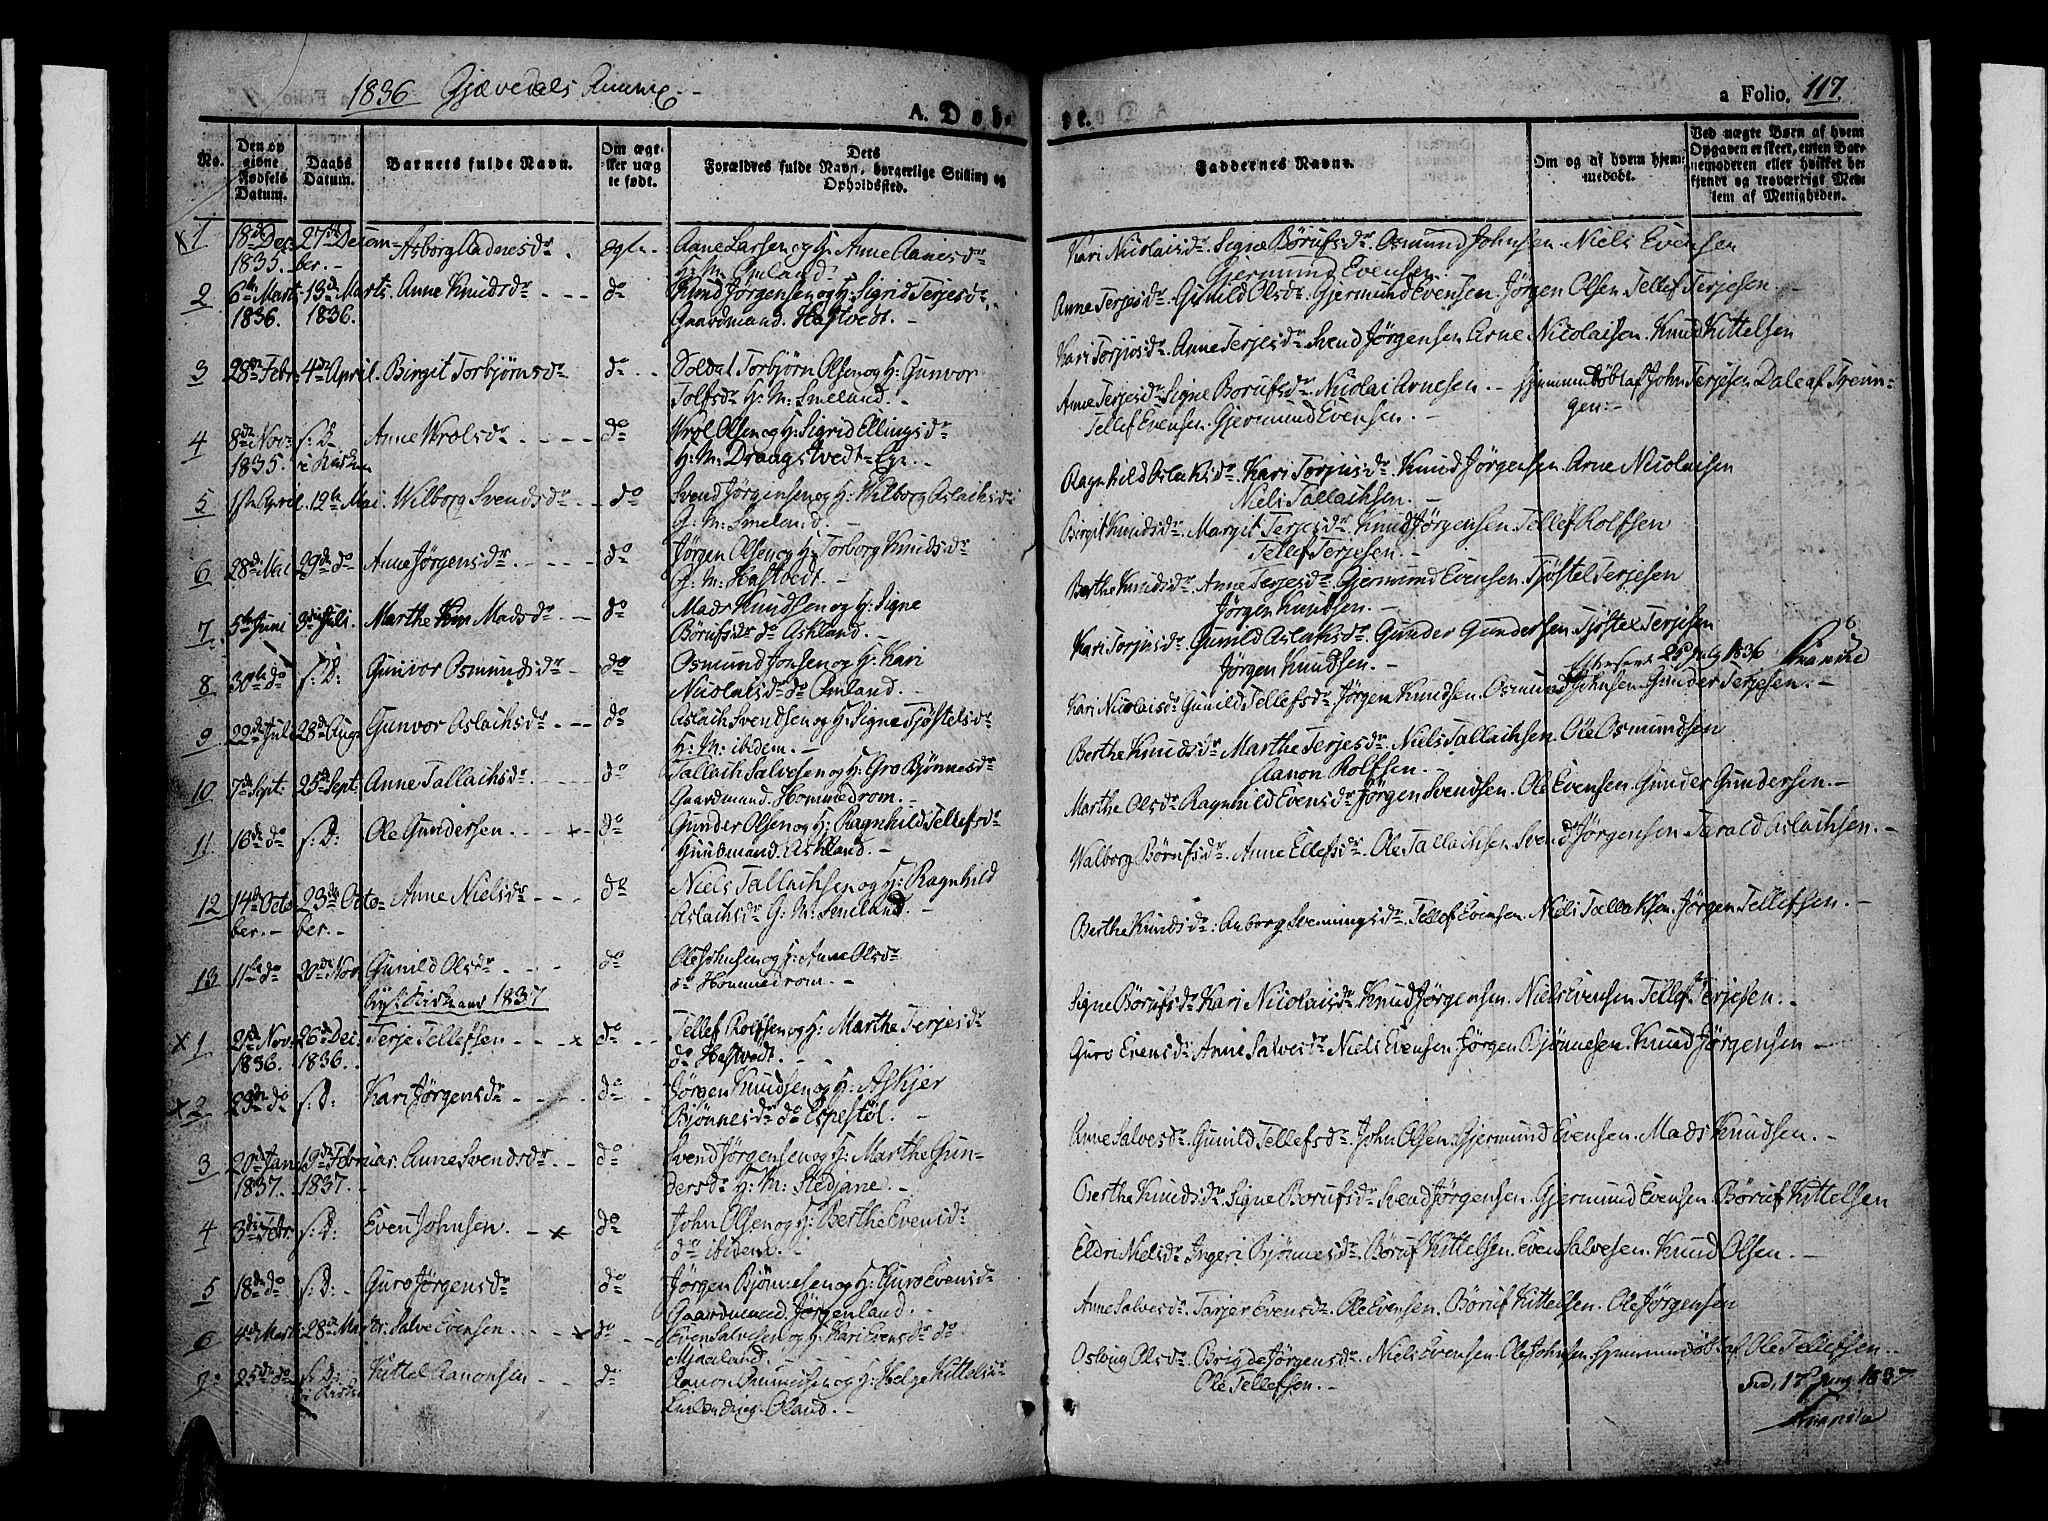 1836 Gjævedals
A. Døb-
te.
a Folio. 117.
No.
Den op
givne
Fødsels
Datum.
Daabs
Datum.
Barnets fulde Navn.
Om ægt-
eller uæg
te født.
Dets
Forældres fulde Navn, borgerlige Stilling og
Opholdssted.
Faddernes Navne.
Om og af hvem hjem-
medøbt.
Ved uægte Børn af hvem
Opgaven er skeet, enten Bar-
nemoderen eller hvilket be-
kjendt og troværdigt Med-
lem af Menigheden.
x 1 18de Dec: 27de Decem- Asborg Aadnesdr. egte. Aane Larsen og H: Anne Aanesdr
1835. ber.- H. M. Omland.
Kari Nicolaisdr. Signe Børufsdr. Osmund Johnsen. Niels Evensen
Gjermund Evensen.
2 6te Marts 13de Marts. Anne Knudsdr. do Knud Jørgensen og H: Sigrid Terjesdr.
1836. 1836. Gaardmand. Hastvedt.-
Anne Terjesdr. Gunild Olsdr. Gjermund Evensen. Jørgen Olsen. Tellef Terjesen.
Kari Torjusdr. Anne Terjesdr. Svend Jørgensen. Arne Nicolaisen. Knud Kittelsen
3 28de Febr. 4de April. Birgit Torbjørnsdr do Soldat Torbjørn Olsen og H: Gunvor
Tolfsdr H: M: Smeland.-
Anne Terjesdr. Signe Børufsdr. Nicolai Arnesen. hjemmedøbt af John Terjesen Dale af Treun-
gen:-
Tellef Evensen. Gjermund Evensen.-
4 8de Nov: s: D: Anne Wrolsdr. do Wrol Olsen og H: Sigrid Ellingsdr
1835. i Kirken H: M: Draagstvedt Eje.-
Ragnhild Aslaksdr. Kari Torjusdr. Knud Jørgensen. Arne Nicolaisen
Niels Tallachsen.-
5 1ste April. 12te Mai. Wilborg Svendsdr do Svend Jørgensen og H: Wilborg Aslachsdr
G. M: Smeland.-
Birgit Knudsdr. Margit Terjesdr. Knud Jørgensen. Tellef Rolfsen
Tellef Terjesen.-
6 28de Mai 29de do Anne Jørgensdr. do Jørgen Olsen og H: Torborg Knudsdr
G. M: Hastvedt.-
Berthe Knudsdr. Anne Terjesdr. Gjermund Evensen. Tjøstel Terjesen
Jørgen Knudsen.-
7 5te Juni 3die Juli. Marthe Madsdr. do Mads Knudsen og H: Signe
Børufsdr do Askland.-
Kari Torjusdr. Gunild Aslaksdr. Gunder Gundersen Tjøstel Terjesen
Jørgen Knudsen.-
8 30te do s: D: Gunvor Osmundsdr do Osmund Jonsen og H: Kari
Nicolaisdr do Omland.-
Kari Nicolaisdr Gunild Tellefsdr. Jørgen Knudsen. Osmund Johnsen. Gunder Terjesen.-
9 29de Juli 28de Aug: Gunvor Aslachsdr do Aslach Svendsen og H: Signe Tjøstelsdr
H: M: ibidem.-
Berthe Knudsdr Marthe Terjesdr. Niels Tallachsen. Ole Osmundsen
Aanon Rolfsen.-
10 7de Sept: 25de Sept: Anne Tallachsdr. do Tallach Salvesen og H: Gro Bjønnesdr
Gaardmand. Hommedrom.-
Marthe Olsdr Ragnhild Evensdr Jørgen Svendsen. Ole Evensen. Gunder Gundersen.
11 16de do s: D: Ole Gundersen. x do Gunder Olsen og H: Ragnhild Tellefsdr
Huusmand. Askland.-
Walborg Børufsdr. Anne Ellefsdr. Ole Tallachsen Svend Jørgensen Tarald Aslachsen.-
12 14de Octo- 23de Octo- Anne Nielsdr. do Niels Tallachsen og H: Ragnhild
ber.- ber.- Aslachsdr G: M: Smeland.-
Berthe Knudsdr: Anborg Svenningsdr. Tellef Evensen. Niels Tallaksen. Jørgen Tellefsen.-
13 11te do 20de Nov Gunild Olsdr. do Ole Johnsen og H: Anne Olsdr
do Hommedrom.-
Signe Børufsdr Kari Nicolaisdr. Knud Jørgensen. Niels Evensen Tellef Terjesen.-
1837
x 1 21de Nov: 26de Dec: Terje Tellefsen x do Tellef Rolfsen og H: Marthe Terjesdr
1836. 1836. do Hastvedt.-
Guro Evensdr Anne Salvesdr Niels Evensen. Jørgen Bjønnesen. Knud Jørgensen
x 2 23de do s: D: Kari Jørgensdr do Jørgen Knudsen og H: Askjer
Bjønnesdr do Espestøl.-
Anne Salvesdr. Gunild Tellefsdr. John Olsen. Gjermund Evensen. Mads Knudsen.-
3 20de Jan: 19de Februar. Anne Svendsdr. do Svend Jørgensen og H: Marthe Gun-
1837. 1837. dersdr H: M: Stedjane.-
Berthe Knudsdr Signe Børufsdr. Svend Jørgensen. Gjermund Evensen. Børuf Kittelsen
4 3die Febr. s: D: Even Johnsen. x do John Olsen og H: Berthe Evensdr
do ibidem.-
Eldri Nielsdr Ingeri Bjønnesdr. Børuf Kittelsen. Even Salvesen. Knud Olsen.-
5 18de do s: D: Guro Jørgensdr do Jørgen Bjønnesen og H: Guro Evensdr
Gaardmand. Jørgenland.-
Anne Salvesdr. Tarjer Evensdr. Ole Evensen. Børuf Kittelsen. Ole Jørgensen
6 4de Marts 28de Marts: Salve Evensen. x do Even Salvesen og H: Kari Evensdr do
Mjaaland.
Osborg Olsdr. Brigde Jørgensdr. Niels Evensen. Ole Johnsen. hjemmedøbt af Ole Tellefsen.
Ole Tellefsen.-
7. 25de do s: D: Kittel Aanonsen do Aanon Gunuldsen og H: Helge Kittelsdr
Oland.-
17 Juny 1837